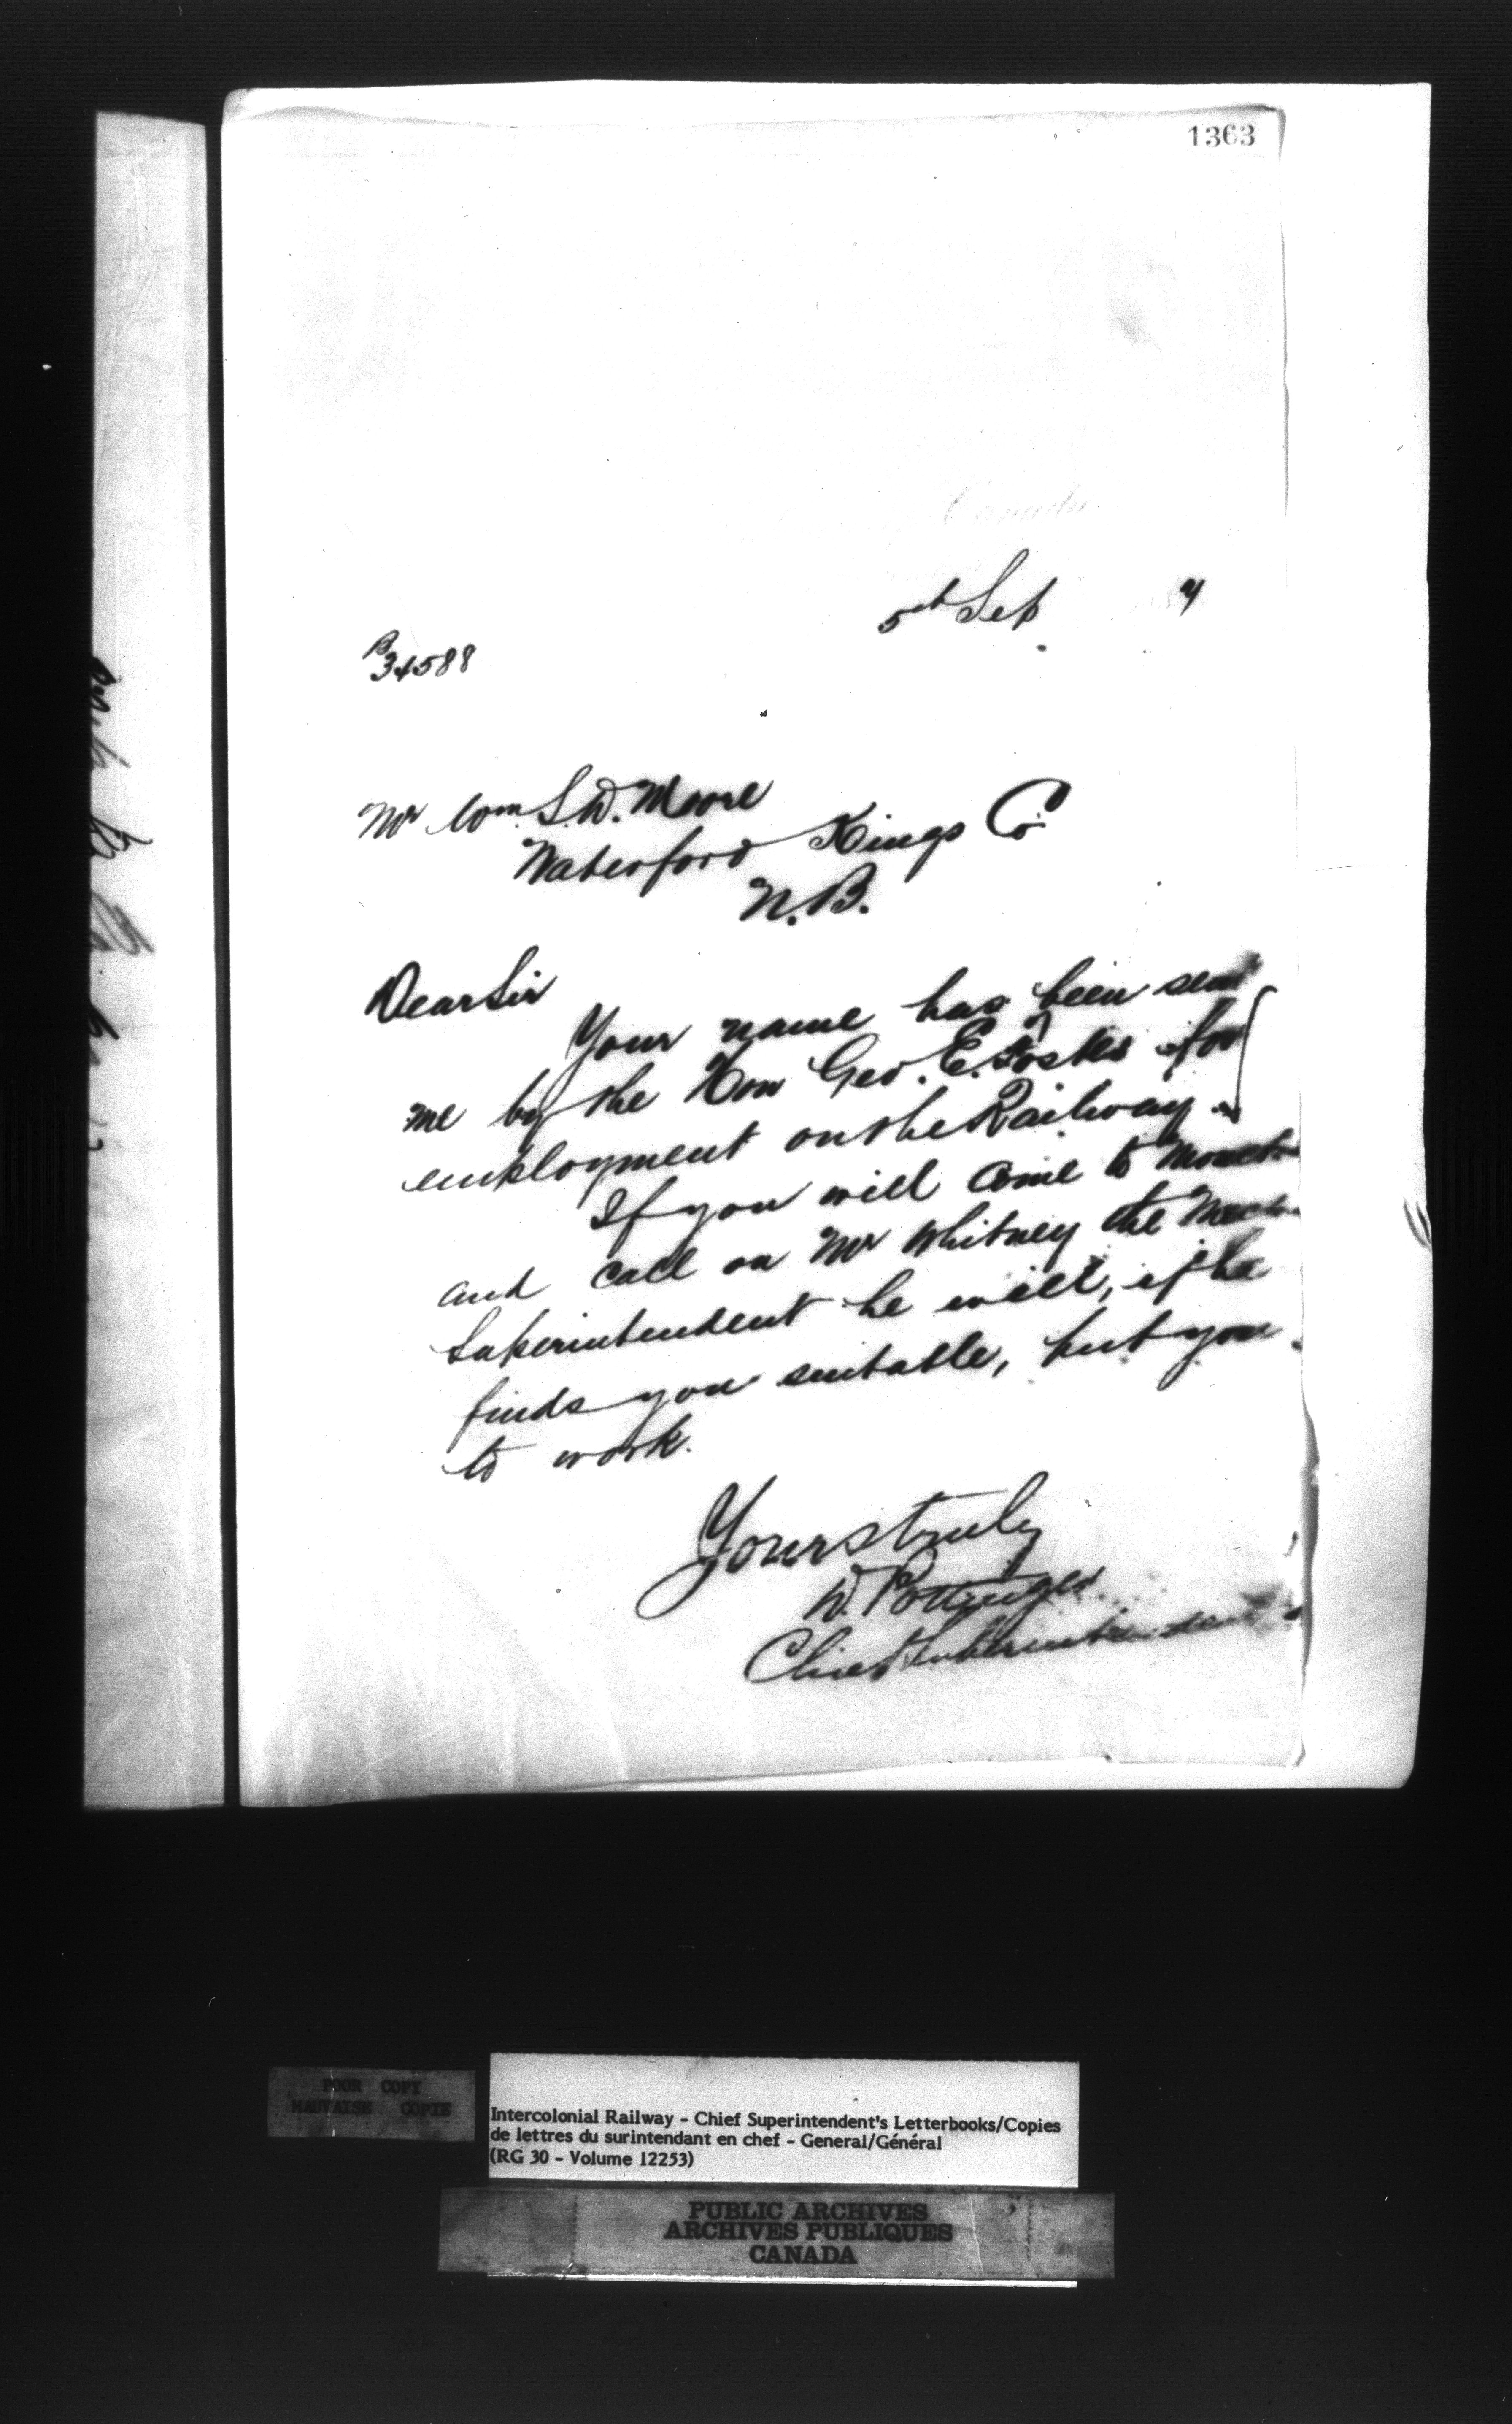 1363
Canada.
5th Sep 7
P34588
Mr Wm S.W. Moore
Waterford Kings Co
N.B.
Dear Sir
Your name has been sent
me by the Hon Geo. E. Foster for
employment on the Railway.
If you will come to Moncto
and call on Mr Whitney the Mech
Superintendent he will, if he
finds you suitable, put you
to work.
Yours truly
D. Pottinger
Chief Superintendent
POOR COPY
MAUVAISE COPIE
Intercolonial Railway - Chief Superintendent's Letterbooks/Copies
de lettres du surintendant en chef - General/Général
(RG 30 - Volume 12253)
PUBLIC ARCHIVES
ARCHIVES PUBLIQUES
CANADA